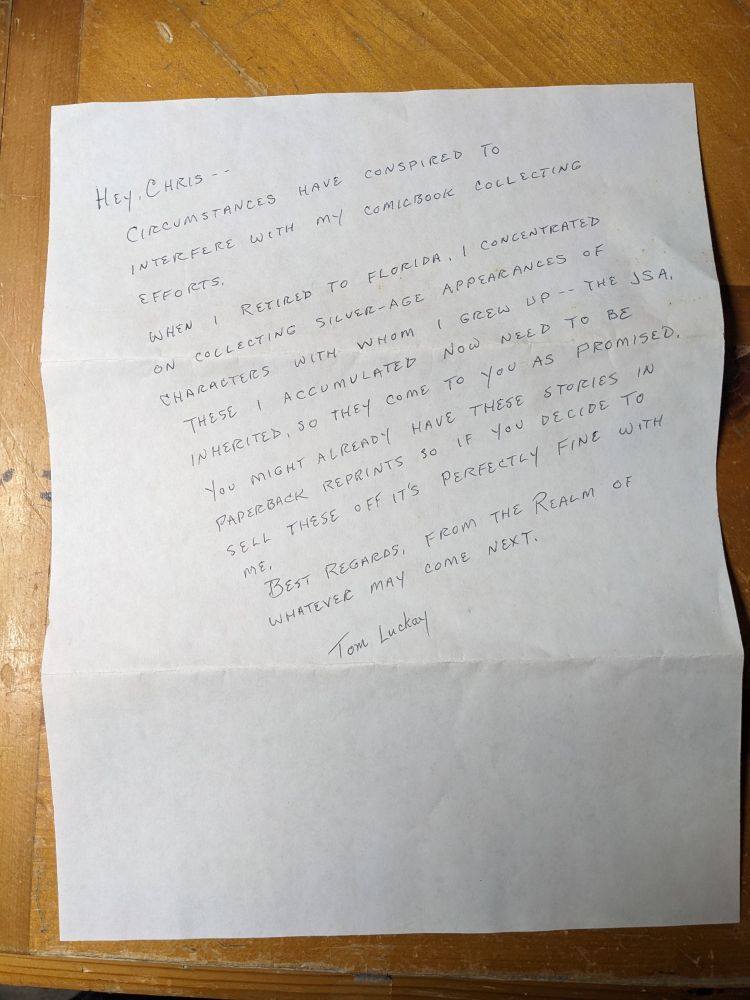 HEY, CHRIS --
CIRCUMSTANCES HAVE CONSPIRED TO
INTERFERE WITH MY COMICBOOK COLLECTING
EFFORTS.
WHEN I RETIRED TO FLORIDA, I CONCENTRATED
ON COLLECTING SILVER-AGE APPEARANCES OF
CHARACTERS WITH WHOM I GREW UP -- THE JSA.
THESE I ACCUMULATED NOW NEED TO BE
INHERITED, SO THEY COME TO YOU AS PROMISED.
YOU MIGHT ALREADY HAVE THESE STORIES IN
PAPERBACK REPRINTS SO IF YOU DECIDE TO
SELL THESE OFF IT'S PERFECTLY FINE WITH
ME.
BEST REGARDS, FROM THE REALM OF
WHATEVER MAY COME NEXT.
Tom Luckay